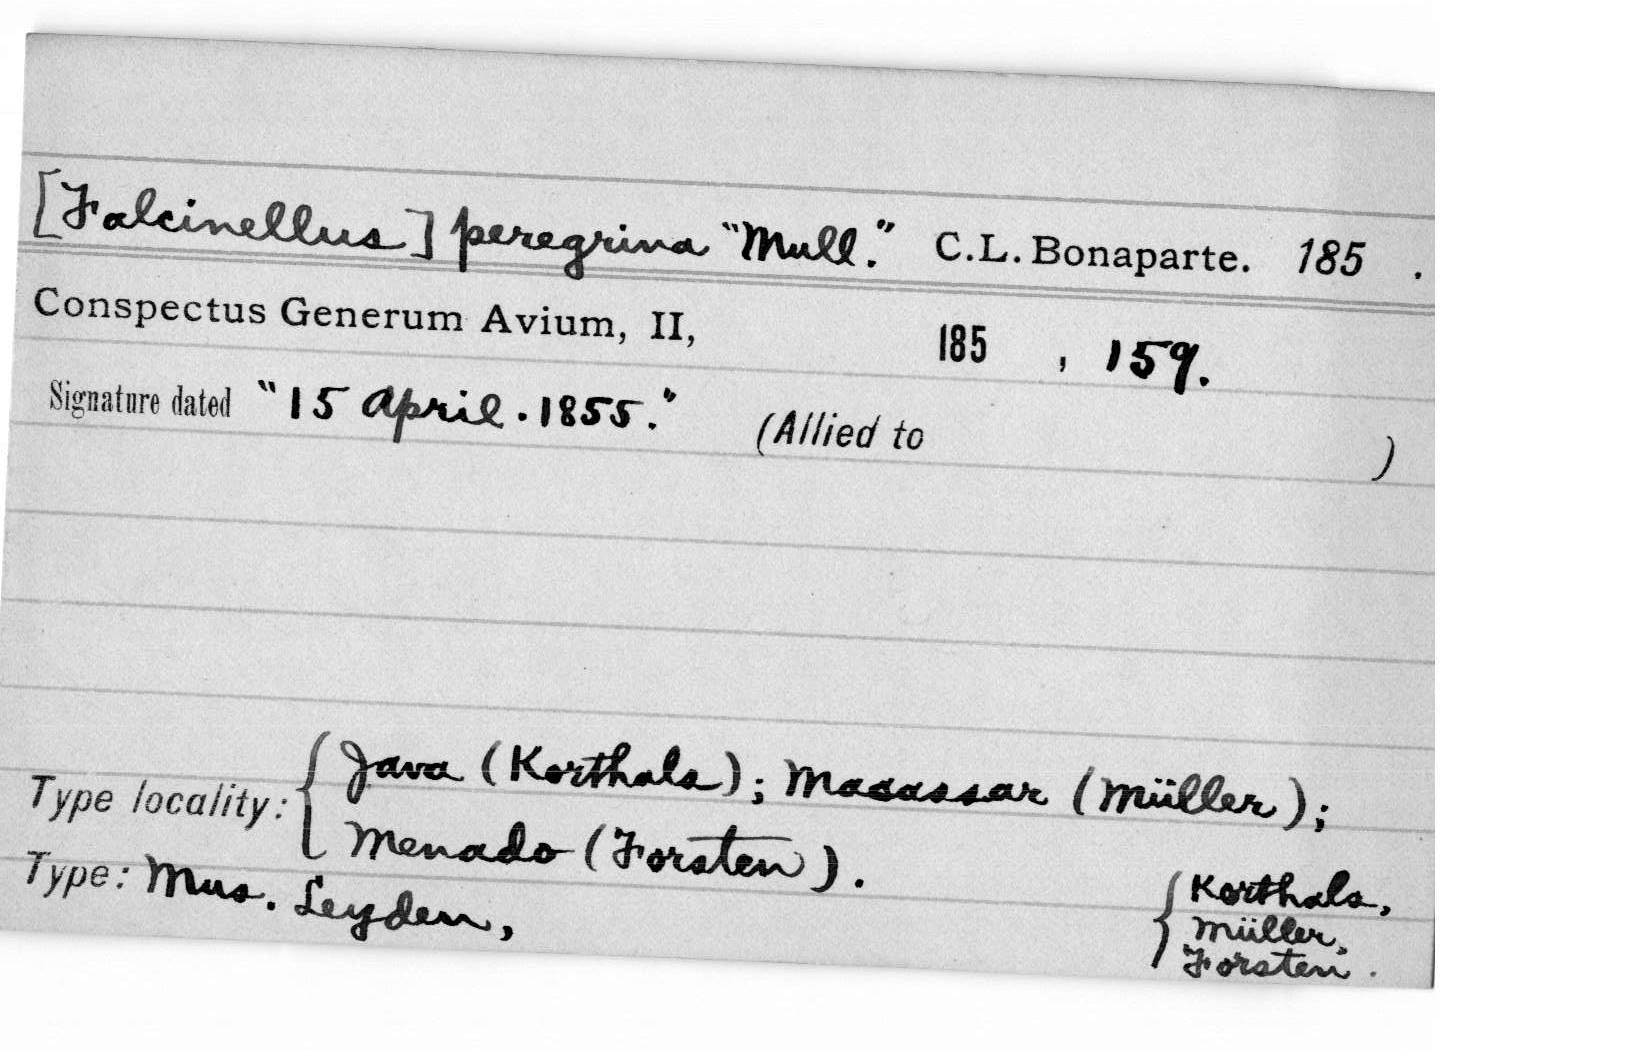 [Falcinellus] peregrina "Mull." C.L. Bonaparte. 185 .
Conspectus Generum Avium, II, 185 , 159.
Signature dated "15 April. 1855." (Allied to )
Type locality: { Java (Korthals); Macassar (Müller);
Menado (Forsten).
Type: Mus. Leyden, { Korthals,
Müller,
Forsten.